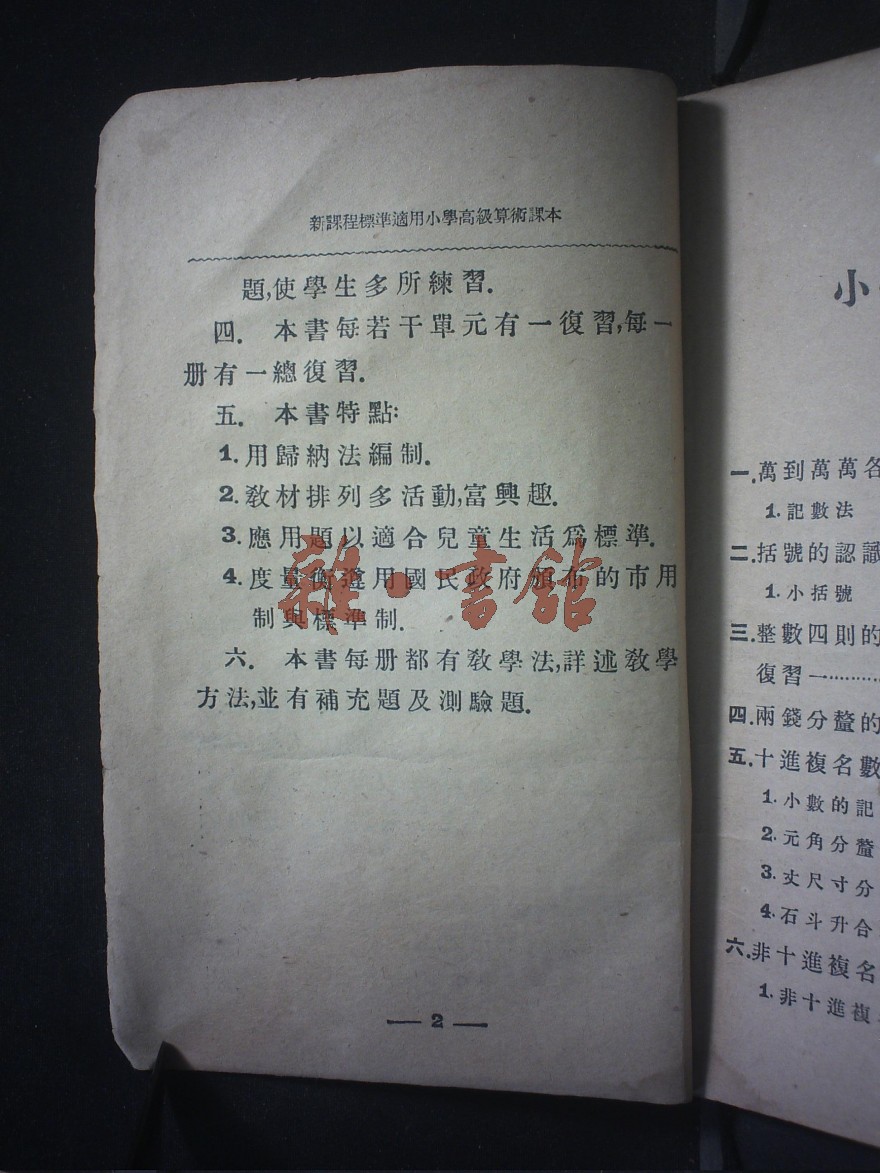 新課程標準適用小學高級算術課本
題,使學生多所練習.
四. 本書每若干單元有一復習,每一
册有一總復習.
五. 本書特點:
1. 用歸納法編制.
2. 敎材排列多活動,富興趣.
3. 應用題以適合兒童生活爲標準.
4. 度量衡遵用國民政府頒布的市用
制與標準制.
六. 本書每册都有敎學法,詳述敎學
方法,並有補充題及測驗題.
— 2 —
雜·書館
小
一.萬到萬萬名
1. 記數法
二.括號的認識
1. 小括號
三.整數四則的
復習一…………
四.兩錢分釐的
五.十進複名數
1. 小數的記
2. 元角分釐
3. 丈尺寸分
4. 石斗升合
六.非十進複名
1. 非十進複